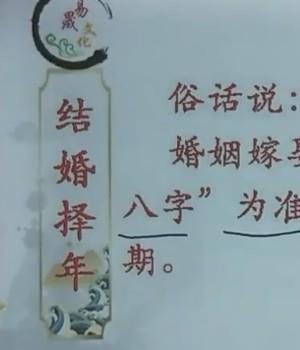 易晟
文化
结婚择年
俗话说：
婚姻嫁娶
八字”为准
期。